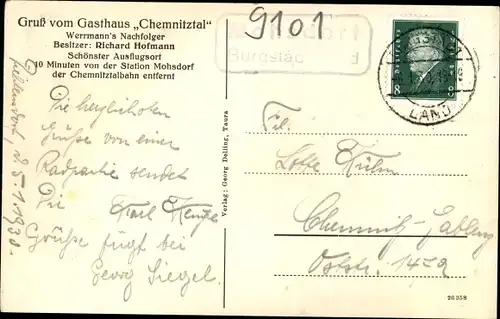 Gruß vom Gasthaus „Chemnitztal"
Werrmann's Nachfolger
Besitzer: Richard Hofmann
Schönster Ausflugsort
10 Minuten von der Station Mohsdorf
der Chemnitztalbahn entfernt
9101
Burgstäd
8 8
LAND
Die herzlichsten
Grüße von einer
Radpartie sendet
Die Karl
Grüße fügt bei
Georg Siegel.
25.1.1930.
Verlag: Georg Delling, Taura
Frl.
Lotte
Chemnitz-
Oststr.
26358